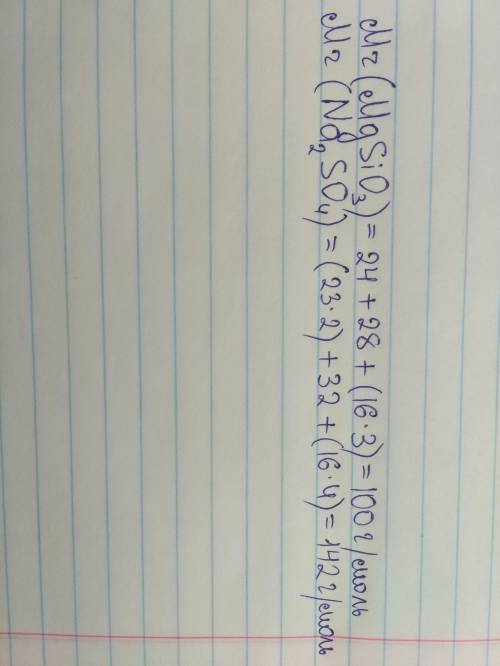 Mr (MgSiO₃) = 24 + 28 + (16·3) = 100 г/моль
Mr (Na₂SO₄) = (23·2) + 32 + (16·4) = 142 г/моль